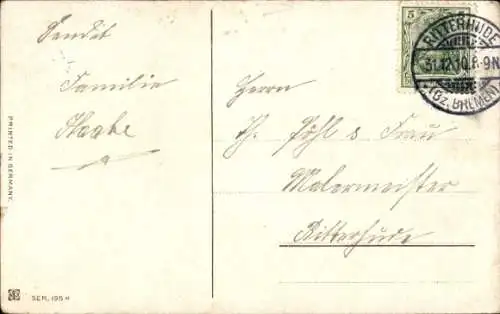 Sendet
Familie
Haake
Herrn
Th. Pöhl & Frau
Malermeister
Ritterhude
5
RITTERHUDE
31.12.10.8-9N
(BZ. BREMEN)
PRINTED IN GERMANY.
SER. 195 H